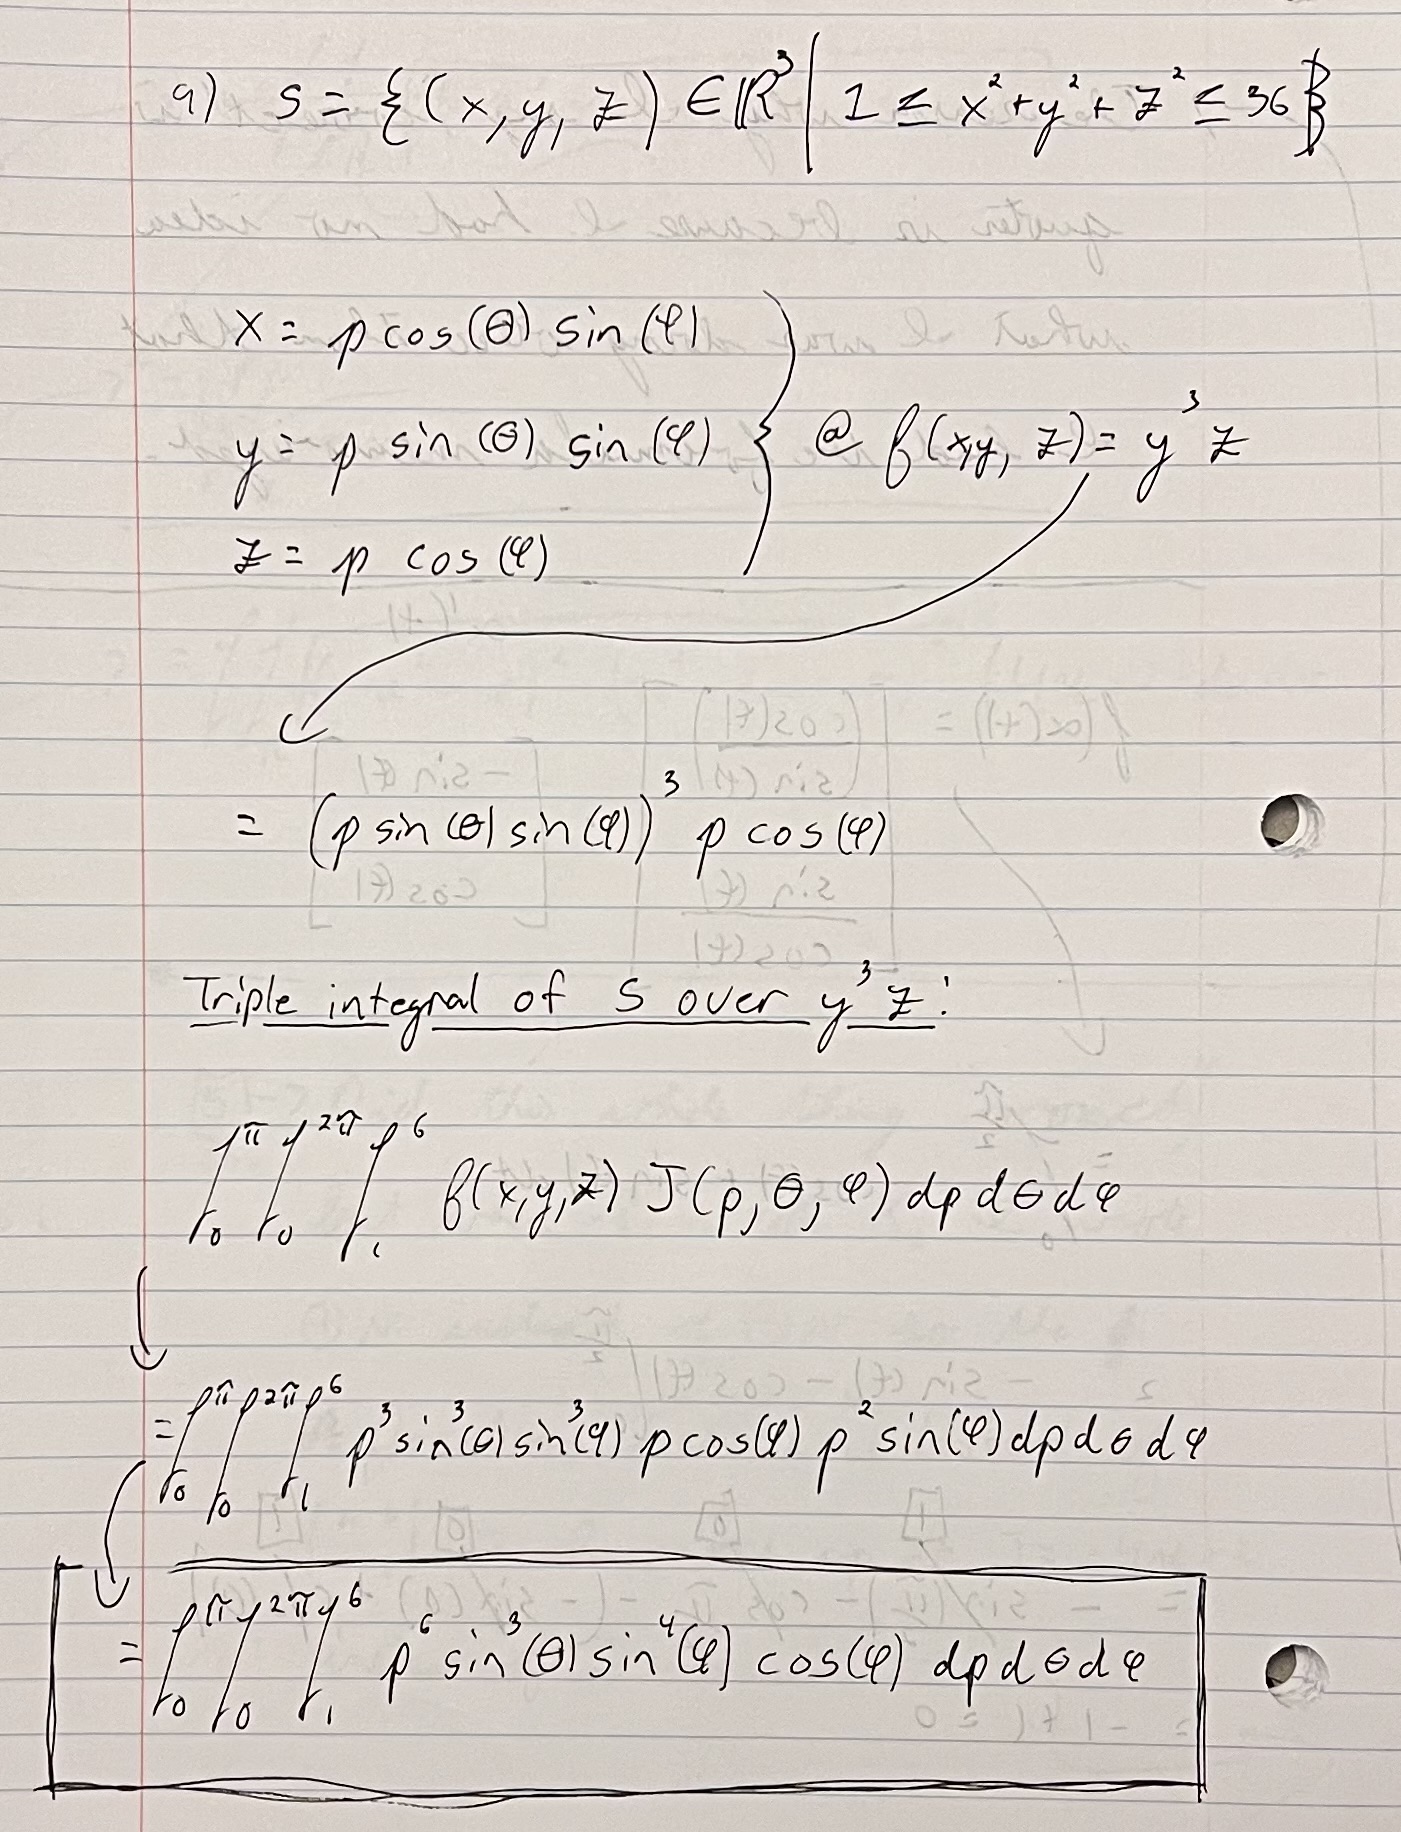 a) S = {(x, y, z) ∈ ℝ³ | 1 ≤ x² + y² + z² ≤ 36}
x = p cos(θ) sin(φ)
y = p sin(θ) sin(φ) } @ f(x,y, z) = y³ z
z = p cos(φ)
= (p sin(θ) sin(φ))³ p cos(φ)
Triple integral of S over y³ z:
∫₀^π ∫₀^2π ∫₁^6 f(x,y,z) J(p, θ, φ) dp dθ dφ
= ∫₀^π ∫₀^2π ∫₁^6 p³ sin³(θ) sin³(φ) p cos(φ) p² sin(φ) dp dθ dφ
= ∫₀^π ∫₀^2π ∫₁^6 p⁶ sin³(θ) sin⁴(φ) cos(φ) dp dθ dφ